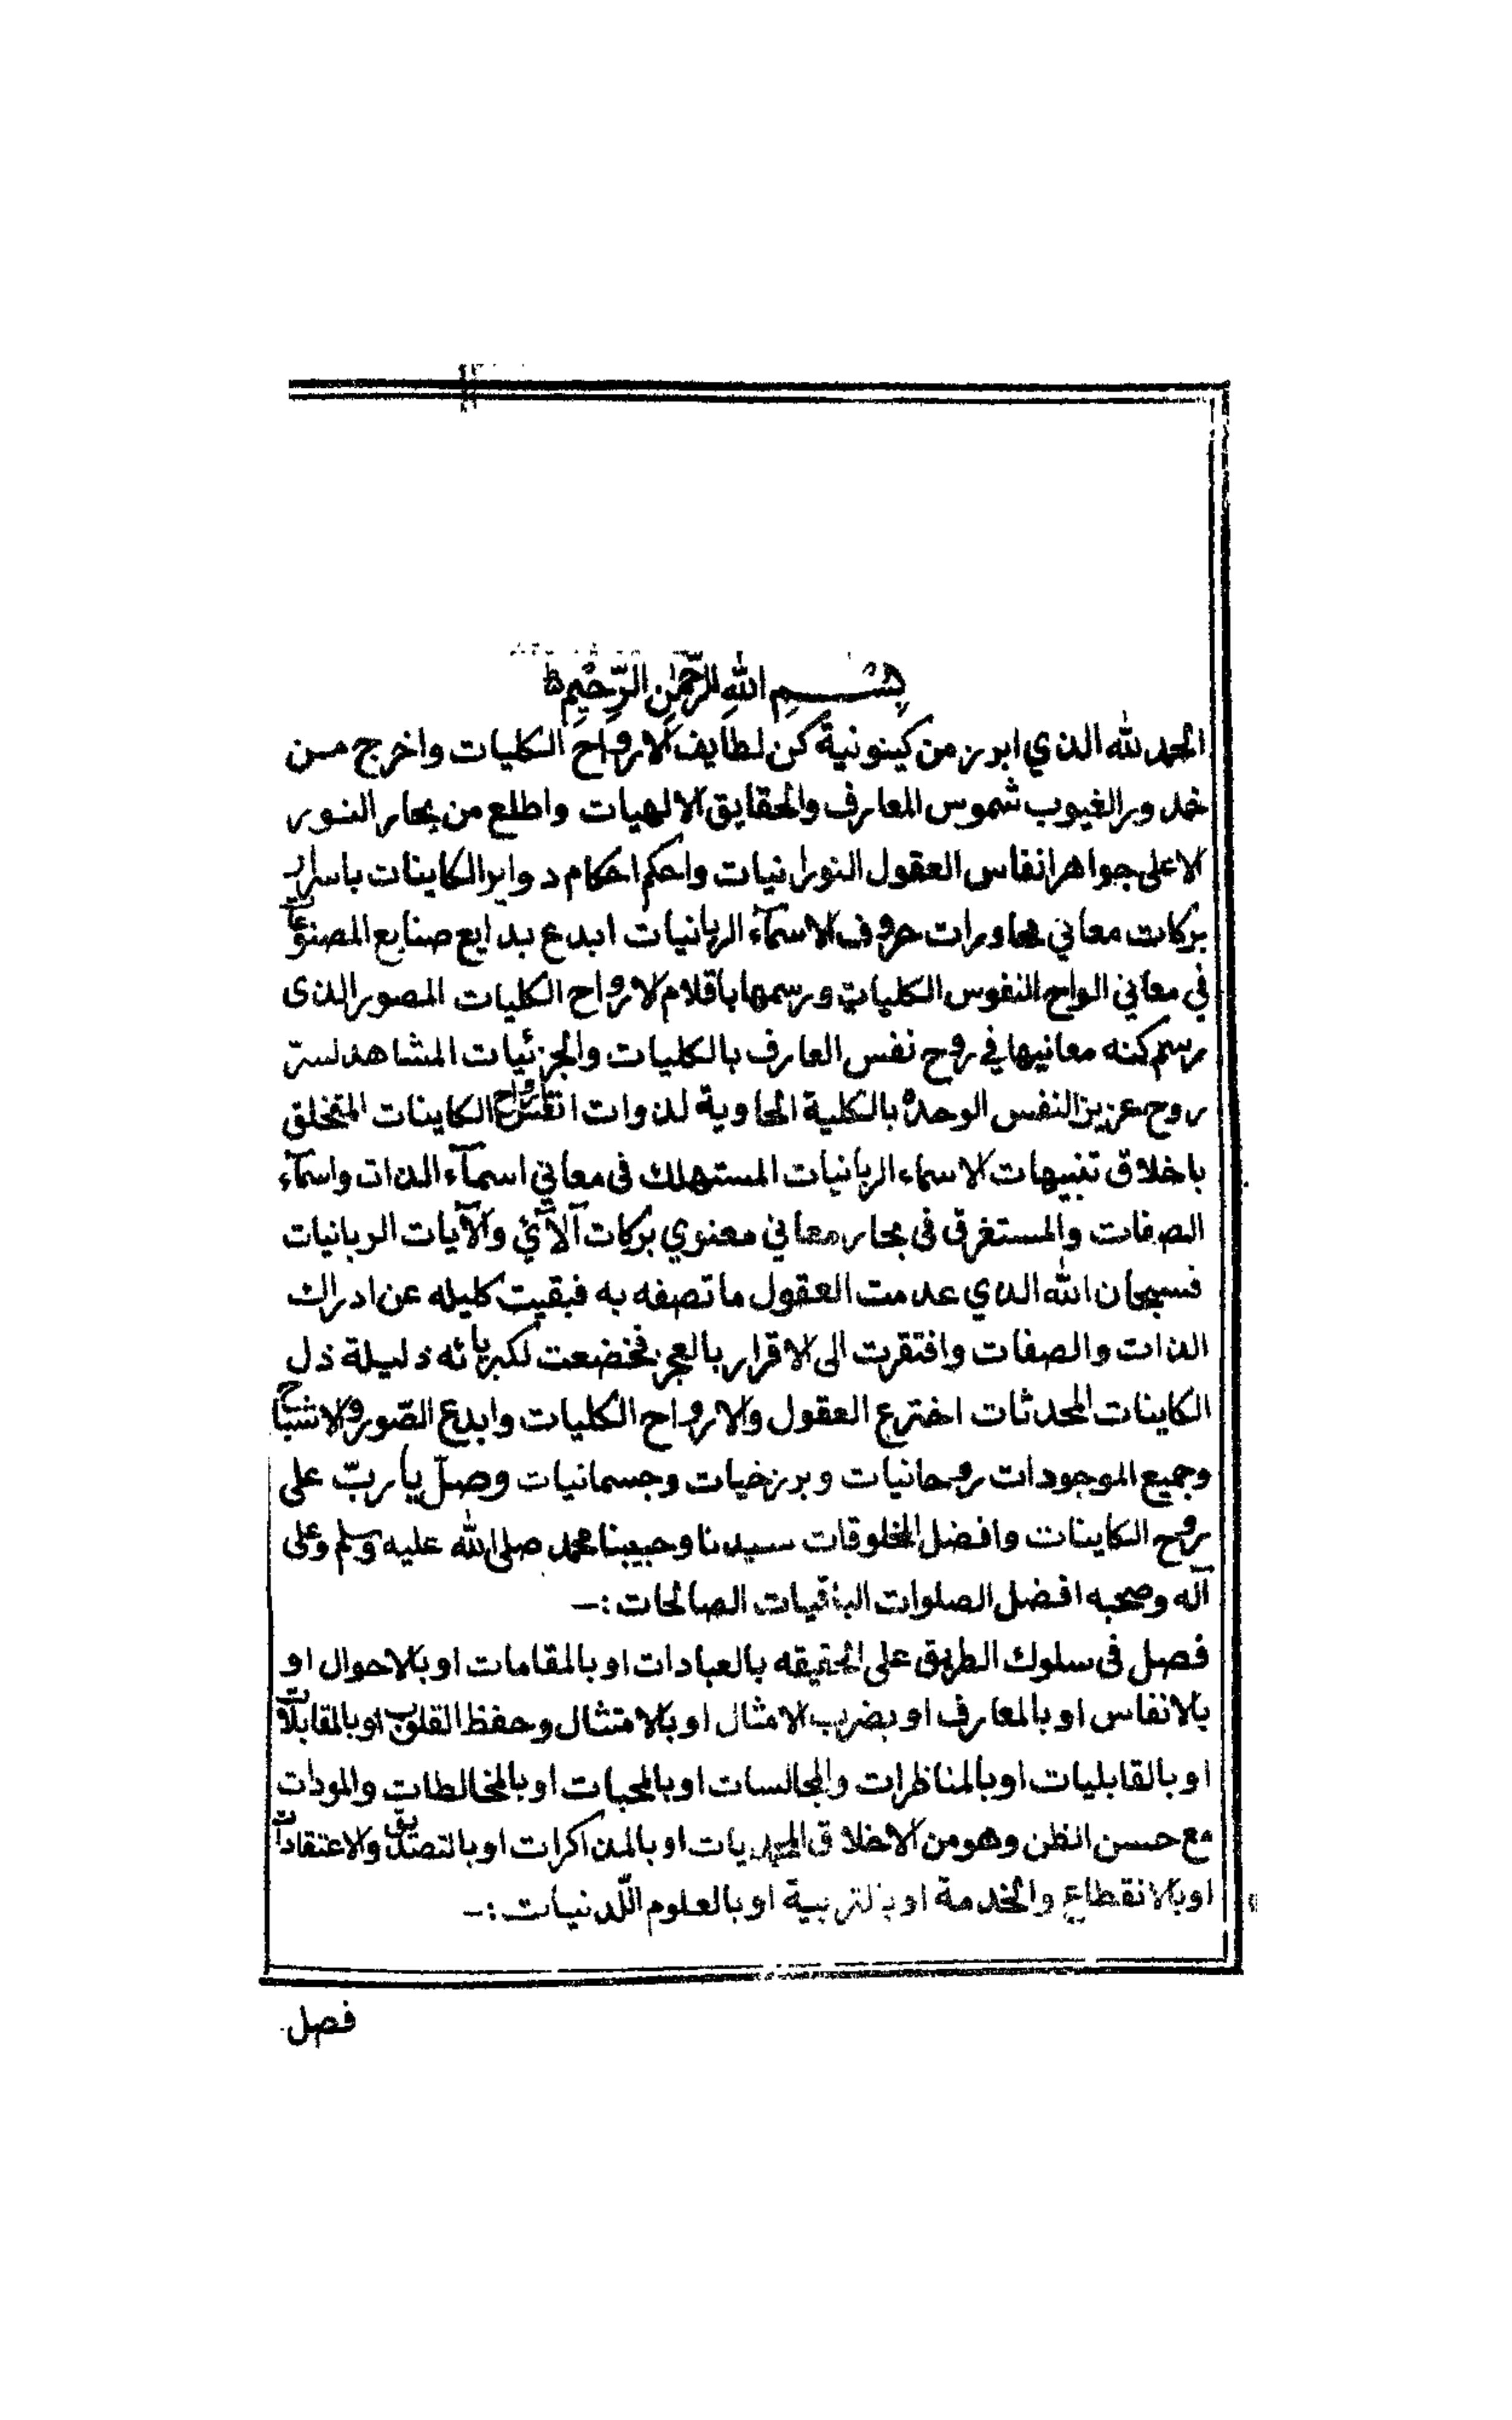 بِسْمِ اللهِ الرَّحْمٰنِ الرَّحِيْمِ
الحمد لله الذي ابرز من كينونية كن لطايف الارواح الكليات واخرج من
خدور الغيوب شموس المعارف والحقايق الالهيات واطلع من بحار النور
الاعلى جواهر انفاس العقول النورانيات واحكم احكام دواير الكاينات باسرار
بركات معاني محاورات حروف الاسمآء الربانيات ابدع بدايع صنايع المصنوعات
في معاني الواح النفوس الكليات ورسمها باقلام الارواح الكليات المصور الذى
رسم كنه معانيها في روح نفس العارف بالكليات والجزئيات المشاهد لسر
روح عزيز النفس الوحدة بالكلية الحاوية لذوات الكاينات المتخلق
باخلاق تنبيهات الاسماء الربانيات المستهلك فى معاني اسمآء الذات واسمآء
الصفات والمستغرق فى بحار معاني معنوي بركات الآئي والآيات الربانيات
فسبحان الله الذي عدمت العقول ما تصفه به فبقيت كليله عن ادراك
الذات والصفات وافتقرت الى الاقرار بالعجز فخضعت لكبريائه ذليلة ذل
الكاينات المحدثات اخترع العقول والارواح الكليات وابدع الصّور والاشباح
وجميع الموجودات روحانيات وبرزخيات وجسمانيات وصلّ يا ربّ على
روح الكاينات وافضل المخلوقات سيدنا وحبيبنا محمد صلى الله عليه وسلم وعلى
آله وصحبه افضل الصلوات الباقيات الصالحات :ـ
فصل فى سلوك الطريق على الحقيقه بالعبادات او بالمقامات او بالاحوال او
بالانفاس او بالمعارف او بضرب الامثال او بالامتثال وحفظ القلوب او بالمقابلات
او بالقابليات او بالمناظرات والمجالسات او بالمحبات او بالمخالطات والمودات
مع حسن الظن وهو من الاخلاق المحمديات او بالمذاكرات او بالتصديق والاعتقادات
او بالانقطاع والخدمة او بالتربية او بالعلوم اللّدنيات :ـ
فصل